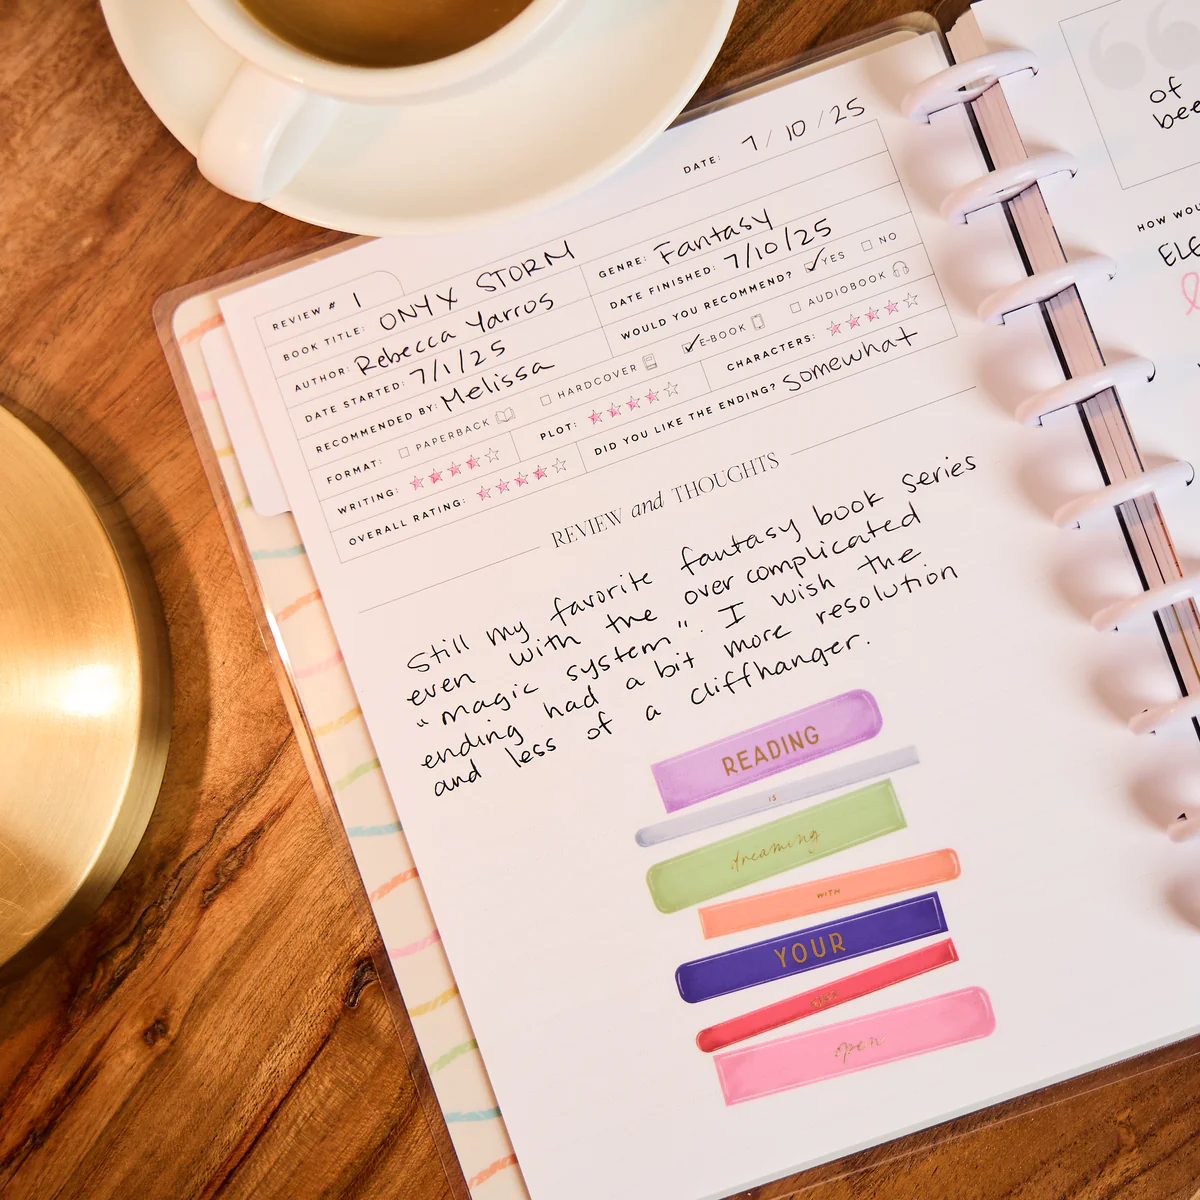 DATE: 7/10/25
REVIEW # 1
BOOK TITLE: ONYX STORM
GENRE: Fantasy
AUTHOR: Rebecca Yarros
DATE FINISHED: 7/10/25
DATE STARTED: 7/1/25
WOULD YOU RECOMMEND? YES NO
RECOMMENDED BY: Melissa
FORMAT: PAPERBACK HARDCOVER E-BOOK AUDIOBOOK
WRITING:
PLOT:
CHARACTERS:
OVERALL RATING:
DID YOU LIKE THE ENDING? Somewhat
REVIEW and THOUGHTS
Still my favorite fantasy book series
even with the over complicated
"magic system". I wish the
ending had a bit more resolution
and less of a cliffhanger.
READING
IS
dreaming
WITH
YOUR
EYES
open
of
HOW WOU